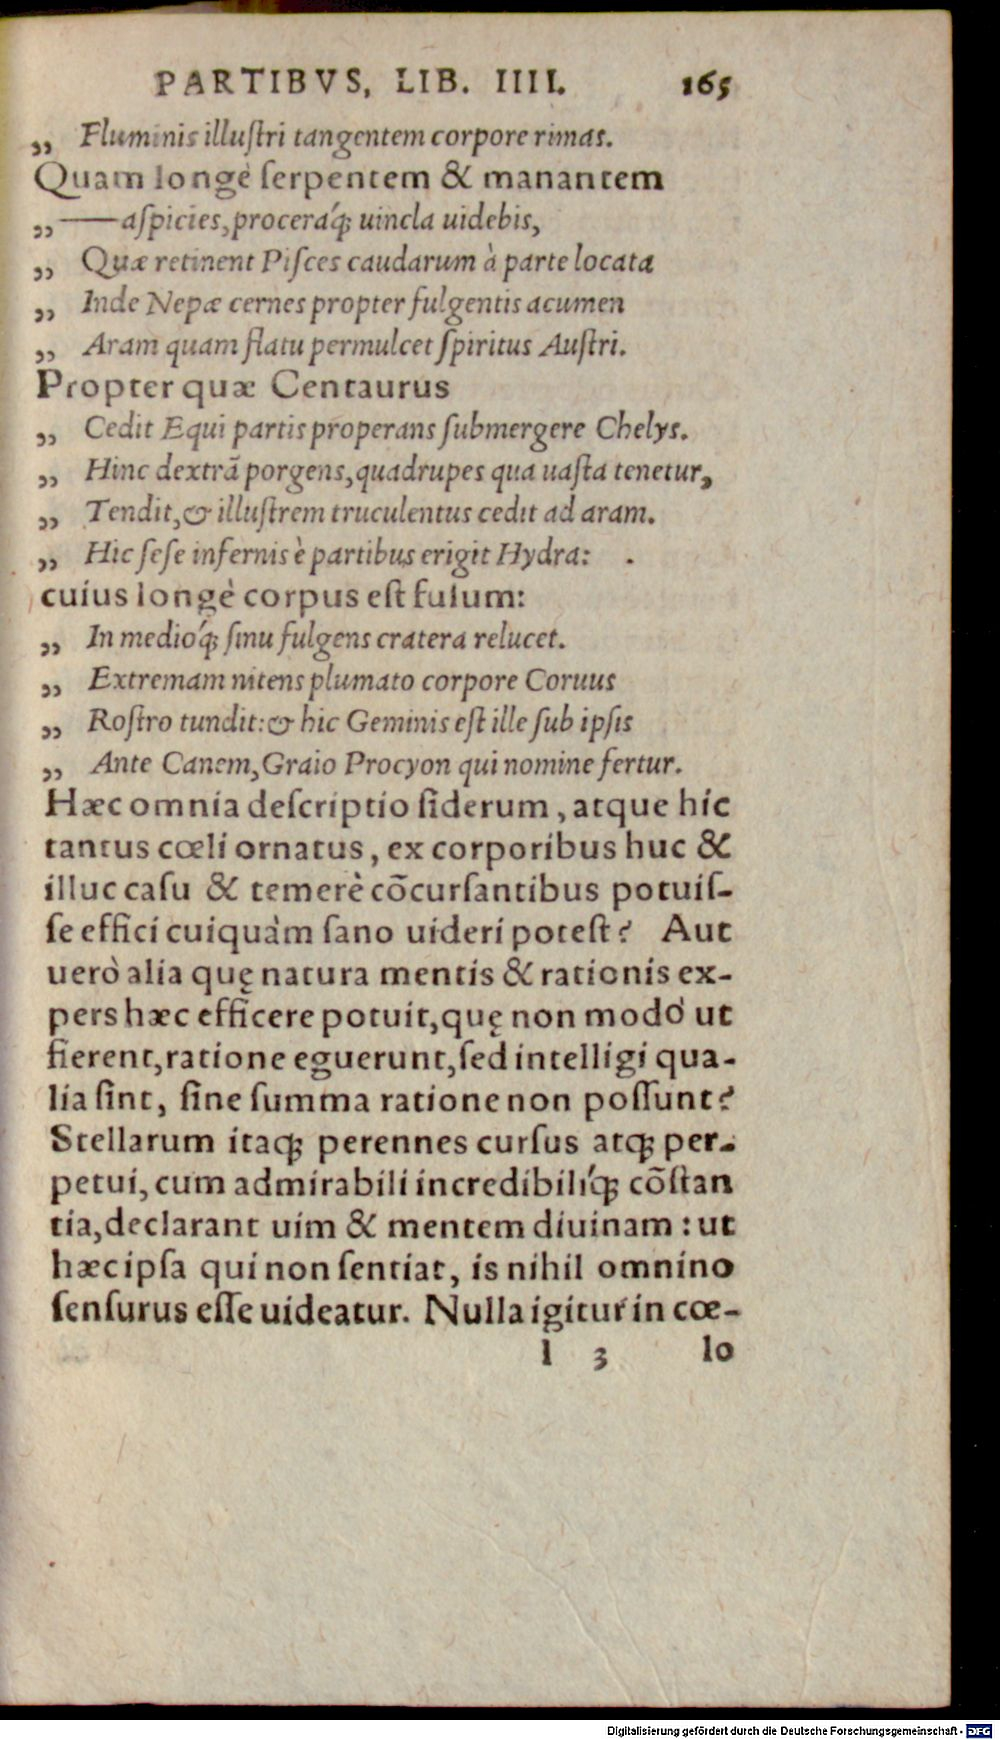 PARTIBVS, LIB. IIII. 165
„ Fluminis illuſtri tangentem corpore rimas.
Quam longè ſerpentem & manantem
„ —— aſpicies, proceraq́ꝫ uincla uidebis,
„ Quæ retinent Piſces caudarum à parte locata
„ Inde Nepæ cernes propter fulgentis acumen
„ Aram quam flatu permulcet ſpiritus Auſtri.
Propter quæ Centaurus
„ Cedit Equi partis properans ſubmergere Chelys.
„ Hinc dextrā porgens, quadrupes qua uaſta tenetur,
„ Tendit, & illuſtrem truculentus cedit ad aram.
„ Hic ſeſe infernis è partibus erigit Hydra:
cuius longè corpus eſt fuſum:
„ In medioq́ꝫ ſinu fulgens cratera relucet.
„ Extremam nitens plumato corpore Coruus
„ Roſtro tundit: & hic Geminis eſt ille ſub ipſis
„ Ante Canem, Graio Procyon qui nomine fertur.
Hæc omnia deſcriptio ſiderum, atque hic
tantus cœli ornatus, ex corporibus huc &
illuc caſu & temerè cōcurſantibus potuiſ-
ſe effici cuiquàm ſano uideri poteſt? Aut
uerò alia quę natura mentis & rationis ex-
pers hæc efficere potuit, quę non modò ut
fierent, ratione eguerunt, ſed intelligi qua-
lia ſint, ſine ſumma ratione non poſſunt?
Stellarum itaqꝫ perennes curſus atqꝫ per-
petui, cum admirabili incredibiliq́ꝫ cōſtan
tia, declarant uim & mentem diuinam: ut
hæc ipſa qui non ſentiat, is nihil omnino
ſenſurus eſſe uideatur. Nulla igitur in cœ-
l 3 lo
Digitalisierung gefördert durch die Deutsche Forschungsgemeinschaft - DFG